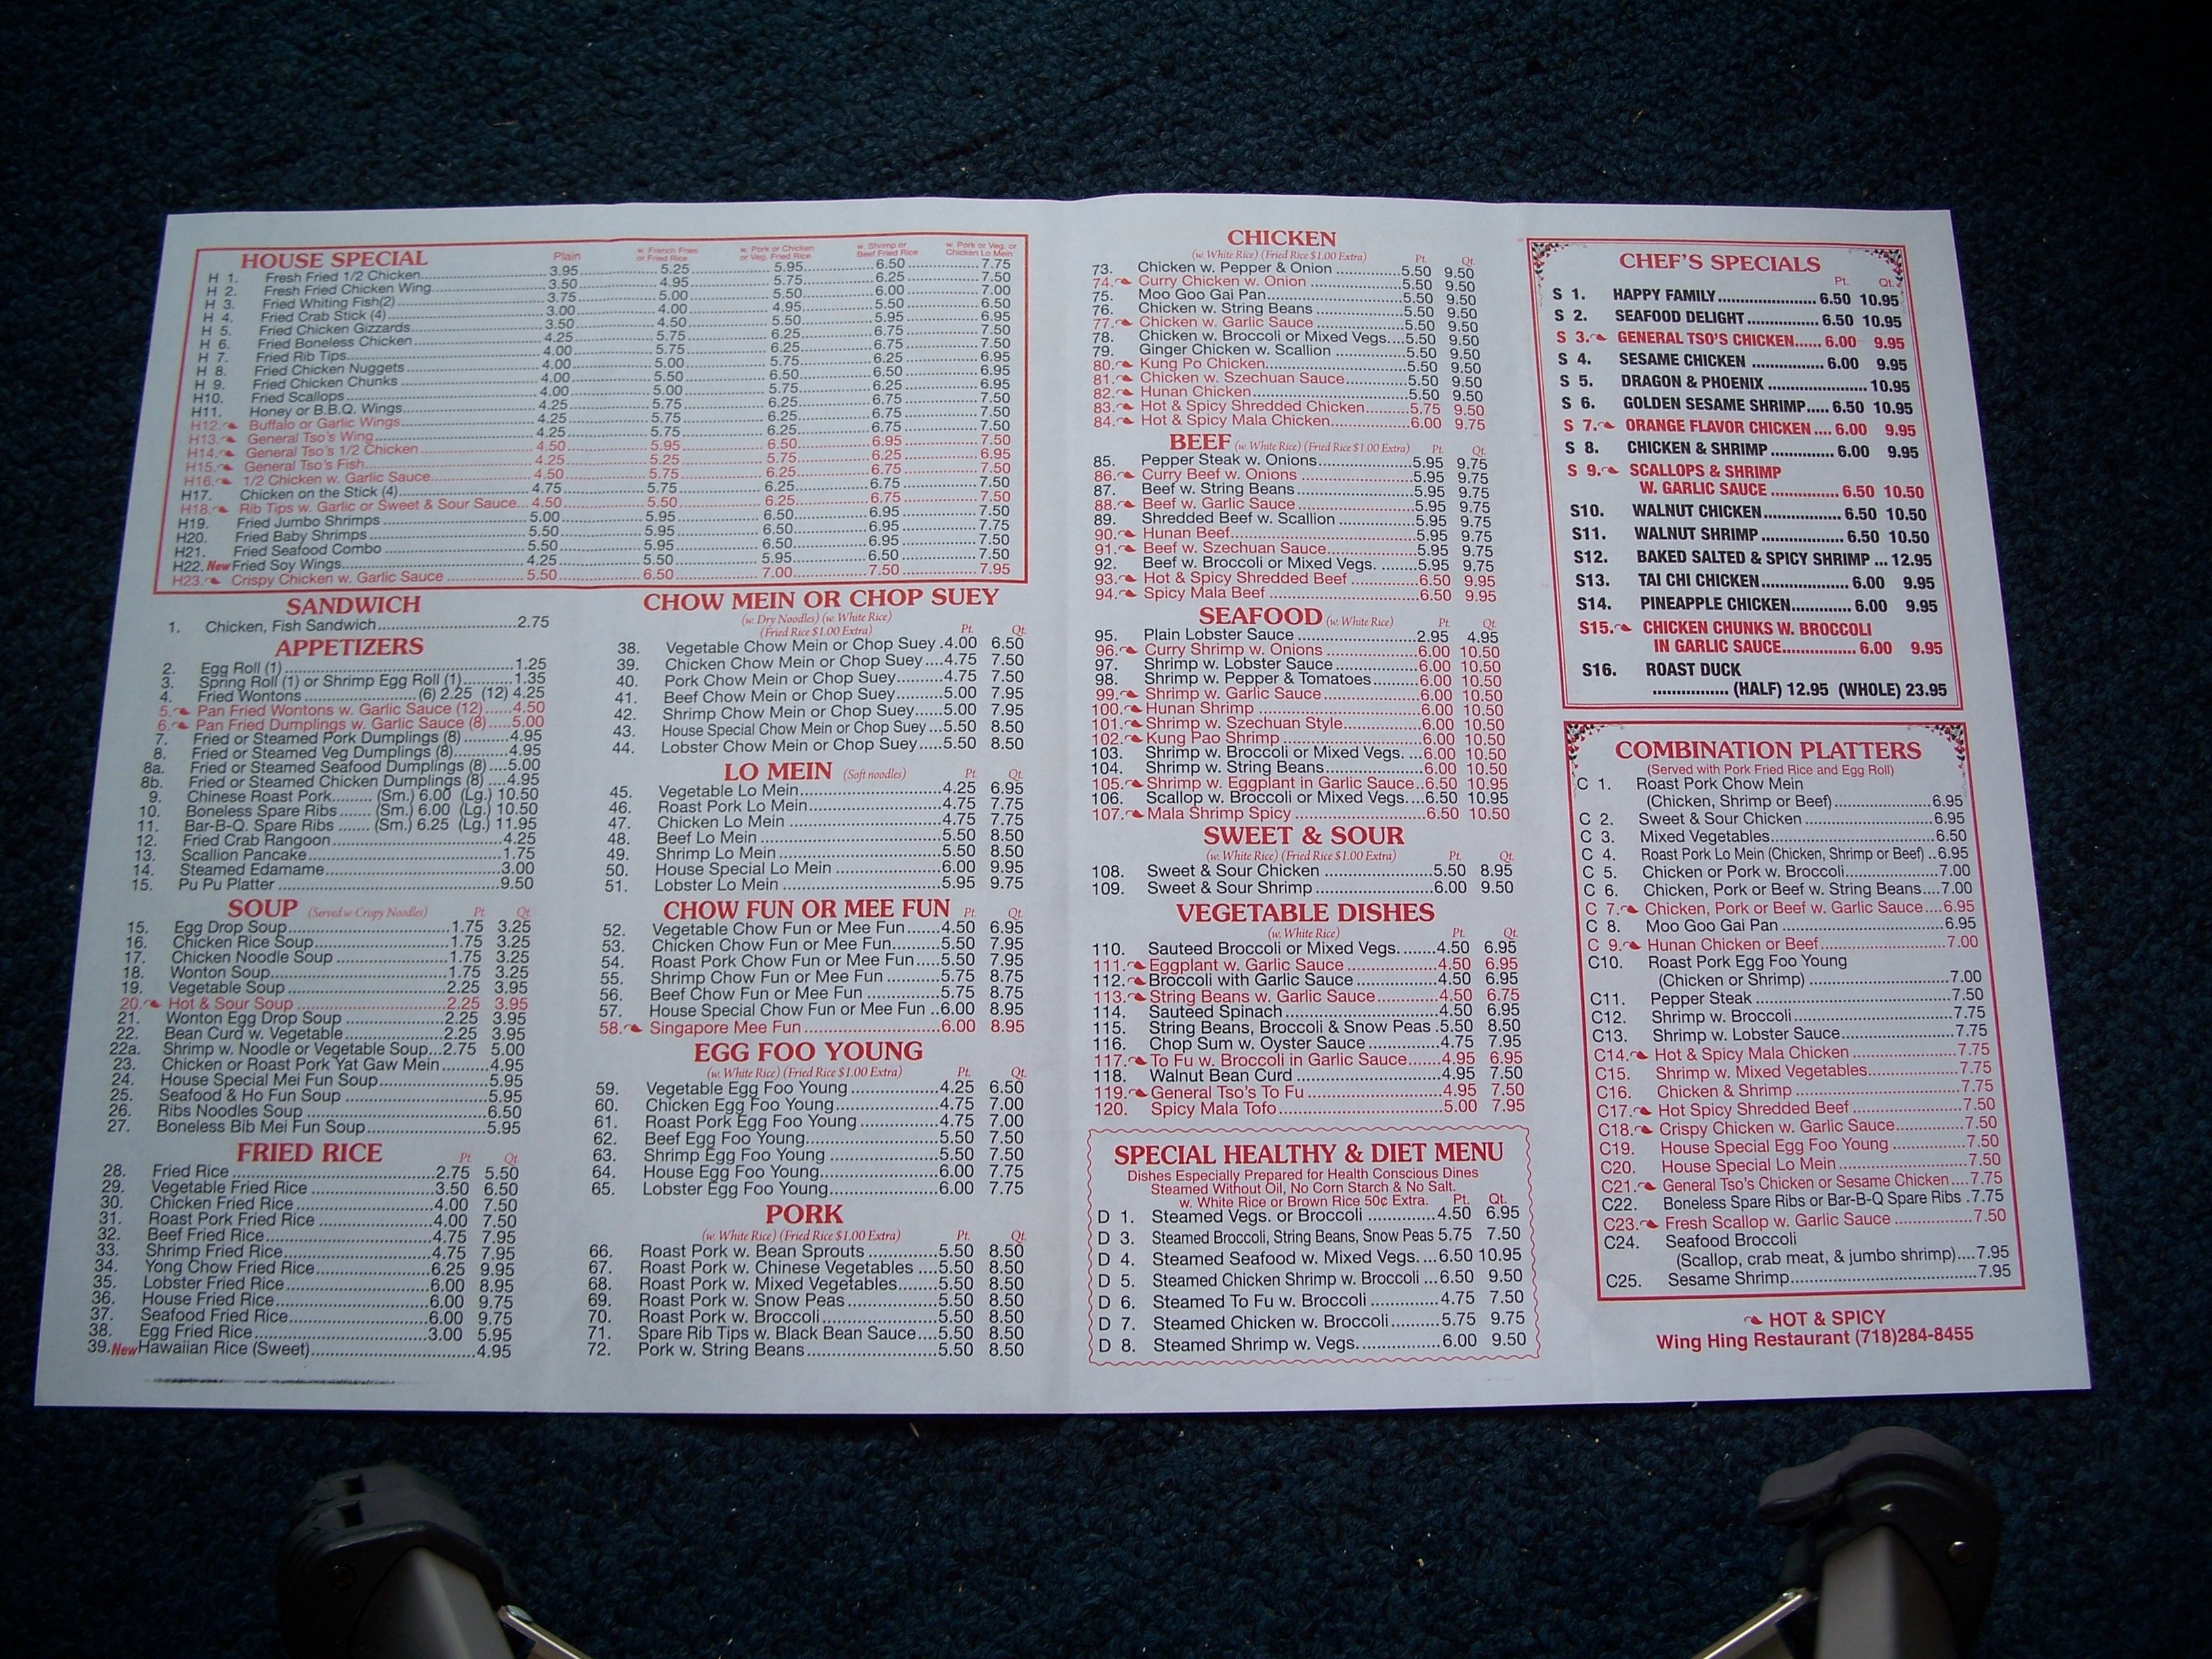 HOUSE SPECIAL Plain w. French Fries or Fried Rice w. Pork or Chicken or Veg. Fried Rice w. Shrimp or Beef Fried Rice w. Pork or Veg. or Chicken Lo Mein
H 1. Fresh Fried 1/2 Chicken 3.95 5.25 5.95 6.50 7.75
H 2. Fresh Fried Chicken Wing 3.50 4.95 5.75 6.25 7.50
H 3. Fried Whiting Fish(2) 3.75 5.00 5.50 6.00 7.00
H 4. Fried Crab Stick (4) 3.00 4.00 4.95 5.50 6.50
H 5. Fried Chicken Gizzards 3.50 4.50 5.50 5.95 6.95
H 6. Fried Boneless Chicken 4.25 5.75 6.25 6.75 7.50
H 7. Fried Rib Tips 4.00 5.75 6.25 6.75 7.50
H 8. Fried Chicken Nuggets 4.00 5.00 5.75 6.25 6.95
H 9. Fried Chicken Chunks 4.00 5.50 6.50 6.50 6.95
H10. Fried Scallops 4.00 5.00 5.75 6.25 6.95
H11. Honey or B.B.Q. Wings 4.25 5.75 6.25 6.75 7.50
H12. Buffalo or Garlic Wings 4.25 5.75 6.25 6.75 7.50
H13. General Tso's Wing 4.25 5.75 6.25 6.75 7.50
H14. General Tso's 1/2 Chicken 4.50 5.95 6.50 6.95 7.50
H15. General Tso's Fish 4.25 5.25 5.75 6.25 6.95
H16. 1/2 Chicken w. Garlic Sauce 4.50 5.75 6.25 6.75 7.50
H17. Chicken on the Stick (4) 4.75 5.75 6.25 6.75 7.50
H18. Rib Tips w. Garlic or Sweet & Sour Sauce 4.50 5.50 6.25 6.75 7.50
H19. Fried Jumbo Shrimps 5.00 5.95 6.50 6.95 7.50
H20. Fried Baby Shrimps 5.50 5.95 6.50 6.95 7.75
H21. Fried Seafood Combo 5.50 5.95 6.50 6.95 7.50
H22. New Fried Soy Wings 4.25 5.50 5.95 6.50 7.50
H23. Crispy Chicken w. Garlic Sauce 5.50 6.50 7.00 7.50 7.95
SANDWICH
1. Chicken, Fish Sandwich 2.75
APPETIZERS
2. Egg Roll (1) 1.25
3. Spring Roll (1) or Shrimp Egg Roll (1) 1.35
4. Fried Wontons (6) 2.25 (12) 4.25
5. Pan Fried Wontons w. Garlic Sauce (12) 4.50
6. Pan Fried Dumplings w. Garlic Sauce (8) 5.00
7. Fried or Steamed Pork Dumplings (8) 4.95
8. Fried or Steamed Veg Dumplings (8) 4.95
8a. Fried or Steamed Seafood Dumplings (8) 5.00
8b. Fried or Steamed Chicken Dumplings (8) 4.95
9. Chinese Roast Pork (Sm.) 6.00 (Lg.) 10.50
10. Boneless Spare Ribs (Sm.) 6.00 (Lg.) 10.50
11. Bar-B-Q. Spare Ribs (Sm.) 6.25 (Lg.) 11.95
12. Fried Crab Rangoon 4.25
13. Scallion Pancake 1.75
14. Steamed Edamame 3.00
15. Pu Pu Platter 9.50
SOUP (Served w. Crispy Noodles) Pt. Qt.
15. Egg Drop Soup 1.75 3.25
16. Chicken Rice Soup 1.75 3.25
17. Chicken Noodle Soup 1.75 3.25
18. Wonton Soup 1.75 3.25
19. Vegetable Soup 2.25 3.95
20. Hot & Sour Soup 2.25 3.95
21. Wonton Egg Drop Soup 2.25 3.95
22. Bean Curd w. Vegetable 2.25 3.95
22a. Shrimp w. Noodle or Vegetable Soup 2.75 5.00
23. Chicken or Roast Pork Yat Gaw Mein 4.95
24. House Special Mei Fun Soup 5.95
25. Seafood & Ho Fun Soup 5.95
26. Ribs Noodles Soup 6.50
27. Boneless Bib Mei Fun Soup 5.95
FRIED RICE Pt. Qt.
28. Fried Rice 2.75 5.50
29. Vegetable Fried Rice 3.50 6.50
30. Chicken Fried Rice 4.00 7.50
31. Roast Pork Fried Rice 4.00 7.50
32. Beef Fried Rice 4.75 7.95
33. Shrimp Fried Rice 4.75 7.95
34. Yong Chow Fried Rice 6.25 9.95
35. Lobster Fried Rice 6.00 8.95
36. House Fried Rice 6.00 9.75
37. Seafood Fried Rice 6.00 9.75
38. Egg Fried Rice 3.00 5.95
39. New Hawaiian Rice (Sweet) 4.95
CHOW MEIN OR CHOP SUEY
(w. Dry Noodles) (w. White Rice)
(Fried Rice $1.00 Extra) Pt. Qt.
38. Vegetable Chow Mein or Chop Suey 4.00 6.50
39. Chicken Chow Mein or Chop Suey 4.75 7.50
40. Pork Chow Mein or Chop Suey 4.75 7.50
41. Beef Chow Mein or Chop Suey 5.00 7.95
42. Shrimp Chow Mein or Chop Suey 5.00 7.95
43. House Special Chow Mein or Chop Suey 5.50 8.50
44. Lobster Chow Mein or Chop Suey 5.50 8.50
LO MEIN (Soft noodles) Pt. Qt.
45. Vegetable Lo Mein 4.25 6.95
46. Roast Pork Lo Mein 4.75 7.75
47. Chicken Lo Mein 4.75 7.75
48. Beef Lo Mein 5.50 8.50
49. Shrimp Lo Mein 5.50 8.50
50. House Special Lo Mein 6.00 9.95
51. Lobster Lo Mein 5.95 9.75
CHOW FUN OR MEE FUN Pt. Qt.
52. Vegetable Chow Fun or Mee Fun 4.50 6.95
53. Chicken Chow Fun or Mee Fun 5.50 7.95
54. Roast Pork Chow Fun or Mee Fun 5.50 7.95
55. Shrimp Chow Fun or Mee Fun 5.75 8.75
56. Beef Chow Fun or Mee Fun 5.75 8.75
57. House Special Chow Fun or Mee Fun 6.00 8.95
58. Singapore Mee Fun 6.00 8.95
EGG FOO YOUNG
(w. White Rice) (Fried Rice $1.00 Extra) Pt. Qt.
59. Vegetable Egg Foo Young 4.25 6.50
60. Chicken Egg Foo Young 4.75 7.00
61. Roast Pork Egg Foo Young 4.75 7.00
62. Beef Egg Foo Young 5.50 7.50
63. Shrimp Egg Foo Young 5.50 7.50
64. House Egg Foo Young 6.00 7.75
65. Lobster Egg Foo Young 6.00 7.75
PORK
(w. White Rice) (Fried Rice $1.00 Extra) Pt. Qt.
66. Roast Pork w. Bean Sprouts 5.50 8.50
67. Roast Pork w. Chinese Vegetables 5.50 8.50
68. Roast Pork w. Mixed Vegetables 5.50 8.50
69. Roast Pork w. Snow Peas 5.50 8.50
70. Roast Pork w. Broccoli 5.50 8.50
71. Spare Rib Tips w. Black Bean Sauce 5.50 8.50
72. Pork w. String Beans 5.50 8.50
CHICKEN
(w. White Rice) (Fried Rice $1.00 Extra) Pt. Qt.
73. Chicken w. Pepper & Onion 5.50 9.50
74. Curry Chicken w. Onion 5.50 9.50
75. Moo Goo Gai Pan 5.50 9.50
76. Chicken w. String Beans 5.50 9.50
77. Chicken w. Garlic Sauce 5.50 9.50
78. Chicken w. Broccoli or Mixed Vegs. 5.50 9.50
79. Ginger Chicken w. Scallion 5.50 9.50
80. Kung Po Chicken 5.50 9.50
81. Chicken w. Szechuan Sauce 5.50 9.50
82. Hunan Chicken 5.50 9.50
83. Hot & Spicy Shredded Chicken 5.75 9.50
84. Hot & Spicy Mala Chicken 6.00 9.75
BEEF (w. White Rice) (Fried Rice $1.00 Extra) Pt. Qt.
85. Pepper Steak w. Onions 5.95 9.75
86. Curry Beef w. Onions 5.95 9.75
87. Beef w. String Beans 5.95 9.75
88. Beef w. Garlic Sauce 5.95 9.75
89. Shredded Beef w. Scallion 5.95 9.75
90. Hunan Beef 5.95 9.75
91. Beef w. Szechuan Sauce 5.95 9.75
92. Beef w. Broccoli or Mixed Vegs. 5.95 9.75
93. Hot & Spicy Shredded Beef 6.50 9.95
94. Spicy Mala Beef 6.50 9.95
SEAFOOD (w. White Rice) Pt. Qt.
95. Plain Lobster Sauce 2.95 4.95
96. Curry Shrimp w. Onions 6.00 10.50
97. Shrimp w. Lobster Sauce 6.00 10.50
98. Shrimp w. Pepper & Tomatoes 6.00 10.50
99. Shrimp w. Garlic Sauce 6.00 10.50
100. Hunan Shrimp 6.00 10.50
101. Shrimp w. Szechuan Style 6.00 10.50
102. Kung Pao Shrimp 6.00 10.50
103. Shrimp w. Broccoli or Mixed Vegs. 6.00 10.50
104. Shrimp w. String Beans 6.00 10.50
105. Shrimp w. Eggplant in Garlic Sauce 6.50 10.95
106. Scallop w. Broccoli or Mixed Vegs. 6.50 10.95
107. Mala Shrimp Spicy 6.50 10.50
SWEET & SOUR
(w. White Rice) (Fried Rice $1.00 Extra) Pt. Qt.
108. Sweet & Sour Chicken 5.50 8.95
109. Sweet & Sour Shrimp 6.00 9.50
VEGETABLE DISHES
(w. White Rice) Pt. Qt.
110. Sauteed Broccoli or Mixed Vegs. 4.50 6.95
111. Eggplant w. Garlic Sauce 4.50 6.95
112. Broccoli with Garlic Sauce 4.50 6.95
113. String Beans w. Garlic Sauce 4.50 6.75
114. Sauteed Spinach 4.50 6.95
115. String Beans, Broccoli & Snow Peas 5.50 8.50
116. Chop Sum w. Oyster Sauce 4.75 7.95
117. To Fu w. Broccoli in Garlic Sauce 4.95 6.95
118. Walnut Bean Curd 4.95 7.50
119. General Tso's To Fu 4.95 7.50
120. Spicy Mala Tofo 5.00 7.95
SPECIAL HEALTHY & DIET MENU
Dishes Especially Prepared for Health Conscious Dines
Steamed Without Oil, No Corn Starch & No Salt.
w. White Rice or Brown Rice 50¢ Extra. Pt. Qt.
D 1. Steamed Vegs. or Broccoli 4.50 6.95
D 3. Steamed Broccoli, String Beans, Snow Peas 5.75 7.50
D 4. Steamed Seafood w. Mixed Vegs. 6.50 10.95
D 5. Steamed Chicken Shrimp w. Broccoli 6.50 9.50
D 6. Steamed To Fu w. Broccoli 4.75 7.50
D 7. Steamed Chicken w. Broccoli 5.75 9.75
D 8. Steamed Shrimp w. Vegs. 6.00 9.50
CHEF'S SPECIALS
Pt. Qt.
S 1. HAPPY FAMILY 6.50 10.95
S 2. SEAFOOD DELIGHT 6.50 10.95
S 3. GENERAL TSO'S CHICKEN 6.00 9.95
S 4. SESAME CHICKEN 6.00 9.95
S 5. DRAGON & PHOENIX 10.95
S 6. GOLDEN SESAME SHRIMP 6.50 10.95
S 7. ORANGE FLAVOR CHICKEN 6.00 9.95
S 8. CHICKEN & SHRIMP 6.00 9.95
S 9. SCALLOPS & SHRIMP
W. GARLIC SAUCE 6.50 10.50
S10. WALNUT CHICKEN 6.50 10.50
S11. WALNUT SHRIMP 6.50 10.50
S12. BAKED SALTED & SPICY SHRIMP 12.95
S13. TAI CHI CHICKEN 6.00 9.95
S14. PINEAPPLE CHICKEN 6.00 9.95
S15. CHICKEN CHUNKS W. BROCCOLI
IN GARLIC SAUCE 6.00 9.95
S16. ROAST DUCK
(HALF) 12.95 (WHOLE) 23.95
COMBINATION PLATTERS
(Served with Pork Fried Rice and Egg Roll)
C 1. Roast Pork Chow Mein
(Chicken, Shrimp or Beef) 6.95
C 2. Sweet & Sour Chicken 6.95
C 3. Mixed Vegetables 6.50
C 4. Roast Pork Lo Mein (Chicken, Shrimp or Beef) 6.95
C 5. Chicken or Pork w. Broccoli 7.00
C 6. Chicken, Pork or Beef w. String Beans 7.00
C 7. Chicken, Pork or Beef w. Garlic Sauce 6.95
C 8. Moo Goo Gai Pan 6.95
C 9. Hunan Chicken or Beef 7.00
C10. Roast Pork Egg Foo Young
(Chicken or Shrimp) 7.00
C11. Pepper Steak 7.50
C12. Shrimp w. Broccoli 7.75
C13. Shrimp w. Lobster Sauce 7.75
C14. Hot & Spicy Mala Chicken 7.75
C15. Shrimp w. Mixed Vegetables 7.75
C16. Chicken & Shrimp 7.75
C17. Hot Spicy Shredded Beef 7.50
C18. Crispy Chicken w. Garlic Sauce 7.50
C19. House Special Egg Foo Young 7.50
C20. House Special Lo Mein 7.50
C21. General Tso's Chicken or Sesame Chicken 7.75
C22. Boneless Spare Ribs or Bar-B-Q Spare Ribs 7.75
C23. Fresh Scallop w. Garlic Sauce 7.50
C24. Seafood Broccoli
(Scallop, crab meat, & jumbo shrimp) 7.95
C25. Sesame Shrimp 7.95
HOT & SPICY
Wing Hing Restaurant (718)284-8455